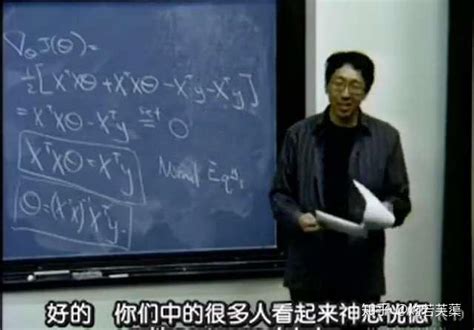 ∇_θ J(θ) =
½[XᵀXθ + XᵀXθ − Xᵀy − Xᵀy]
= XᵀXθ − Xᵀy set= 0
XᵀXθ = Xᵀy
Normal Eqns
θ = (XᵀX)⁻¹Xᵀy.
好的 你们中的很多人看起来神志恍惚
知乎